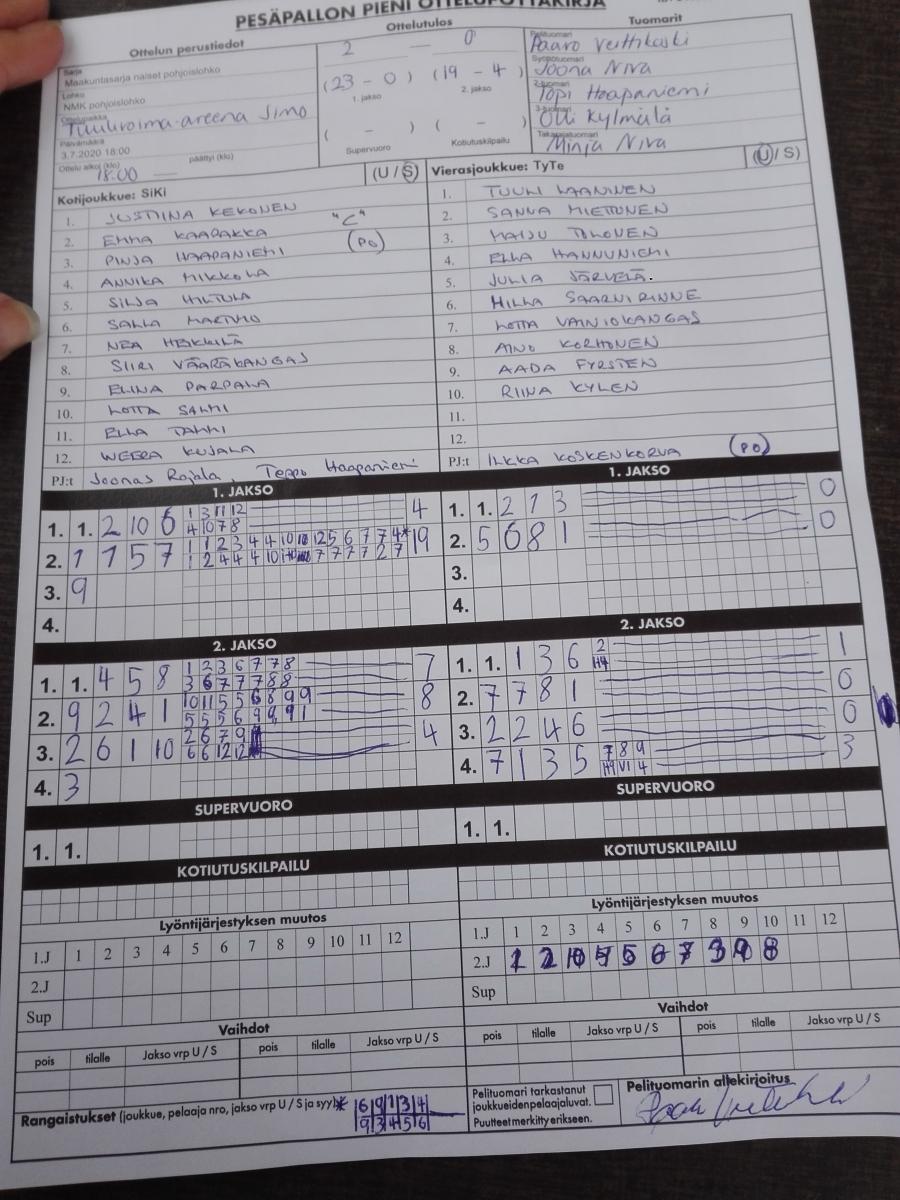 PESÄPALLON PIENI OTTELUPÖYTÄKIRJA
Ottelun perustiedot
Sarja
Maakuntasarja naiset pohjoislohko
Lohko
NMK pohjoislohko
Ottelupaikka
Tuulivoima-areena Simo
Päivämäärä
3.7.2020 18:00
Ottelu alkoi (klo) päättyi (klo)
18:00
Ottelutulos
2 — 0
(23 - 0) (19 - 4)
1. jakso 2. jakso
( - ) ( - )
Supervuoro Kotiutuskilpailu
Tuomarit
Pelituomari
Paavo Vertikoski
Syöttötuomari
Joona Niva
2-tuomari
Topi Haapaniemi
3-tuomari
Olli Kylmälä
Takarajatuomari
Minja Niva
Kotijoukkue: SiKi (U / S)
1. JUSTIINA KEKONEN
2. EMMA KAARAKKA "C"
3. PINJA HAAPANIEMI (PO)
4. ANNIKA MIKKOLA
5. SILJA HILTULA
6. SALLA
7. NEA HEIKKILÄ
8. SIIRI VÄÄRÄKANGAS
9. ELINA PARPALA
10. LOTTA SALMI
11. ELLA TAMMI
12. WEERA KUJALA
PJ:t Joonas Rajala, Teppo Haapaniemi
Vierasjoukkue: TyTe (U / S)
1. TUULI LAANINEN
2. SANNA MIETTUNEN
3. MAIJU TOLONEN
4. ELLA HANNUNIEMI
5. JULIA JÄRVELÄ
6. MILLA SAARNIRINNE
7. LOTTA VAINIOKANGAS
8. AINO KORHONEN
9. AADA FYRSTEN
10. RIINA KYLEN
11.
12.
PJ:t ILKKA KOSKENKORVA (PO)
1. JAKSO
1. 1. 2 10 6 1 3 11 12 4
4 10 7 8
2. 1 7 5 7 1 1 2 3 4 4 10 12 5 6 7 7 4* 19
3. 9
4.
1. JAKSO
1. 1. 2 7 3 0
2. 5 6 8 1 0
3.
4.
2. JAKSO
1. 1. 4 5 8 1 2 3 6 7 7 8 7
3 6 7 7 7 8 8
2. 9 2 4 1 10 11 5 5 6 8 9 9 8
5 5 5 6 9 9 9 1
3. 2 6 1 10 2 6 7 9 4
6 6 12 12
4. 3
2. JAKSO
1. 1. 1 3 6 2 1
2. 7 7 8 1 0
3. 2 2 4 6 0
4. 7 1 3 5 7 8 9 3
SUPERVUORO
1. 1.
SUPERVUORO
1. 1.
KOTIUTUSKILPAILU
KOTIUTUSKILPAILU
Lyöntijärjestyksen muutos
1.J 1 2 3 4 5 6 7 8 9 10 11 12
2.J
Sup
Lyöntijärjestyksen muutos
1.J 1 2 3 4 5 6 7 8 9 10 11 12
2.J 1 2 10 4 5 6 7 3 9 8
Sup
Vaihdot
pois tilalle Jakso vrp U / S pois tilalle Jakso vrp U / S
Vaihdot
pois tilalle Jakso vrp U / S pois tilalle Jakso vrp U / S
Rangaistukset (joukkue, pelaaja nro, jakso vrp U / S ja syy) * 6 9 1 3 4
9 3 4 5 6
Pelituomari tarkastanut
joukkueidenpelaajaluvat.
Puutteet merkitty erikseen.
Pelituomarin allekirjoitus